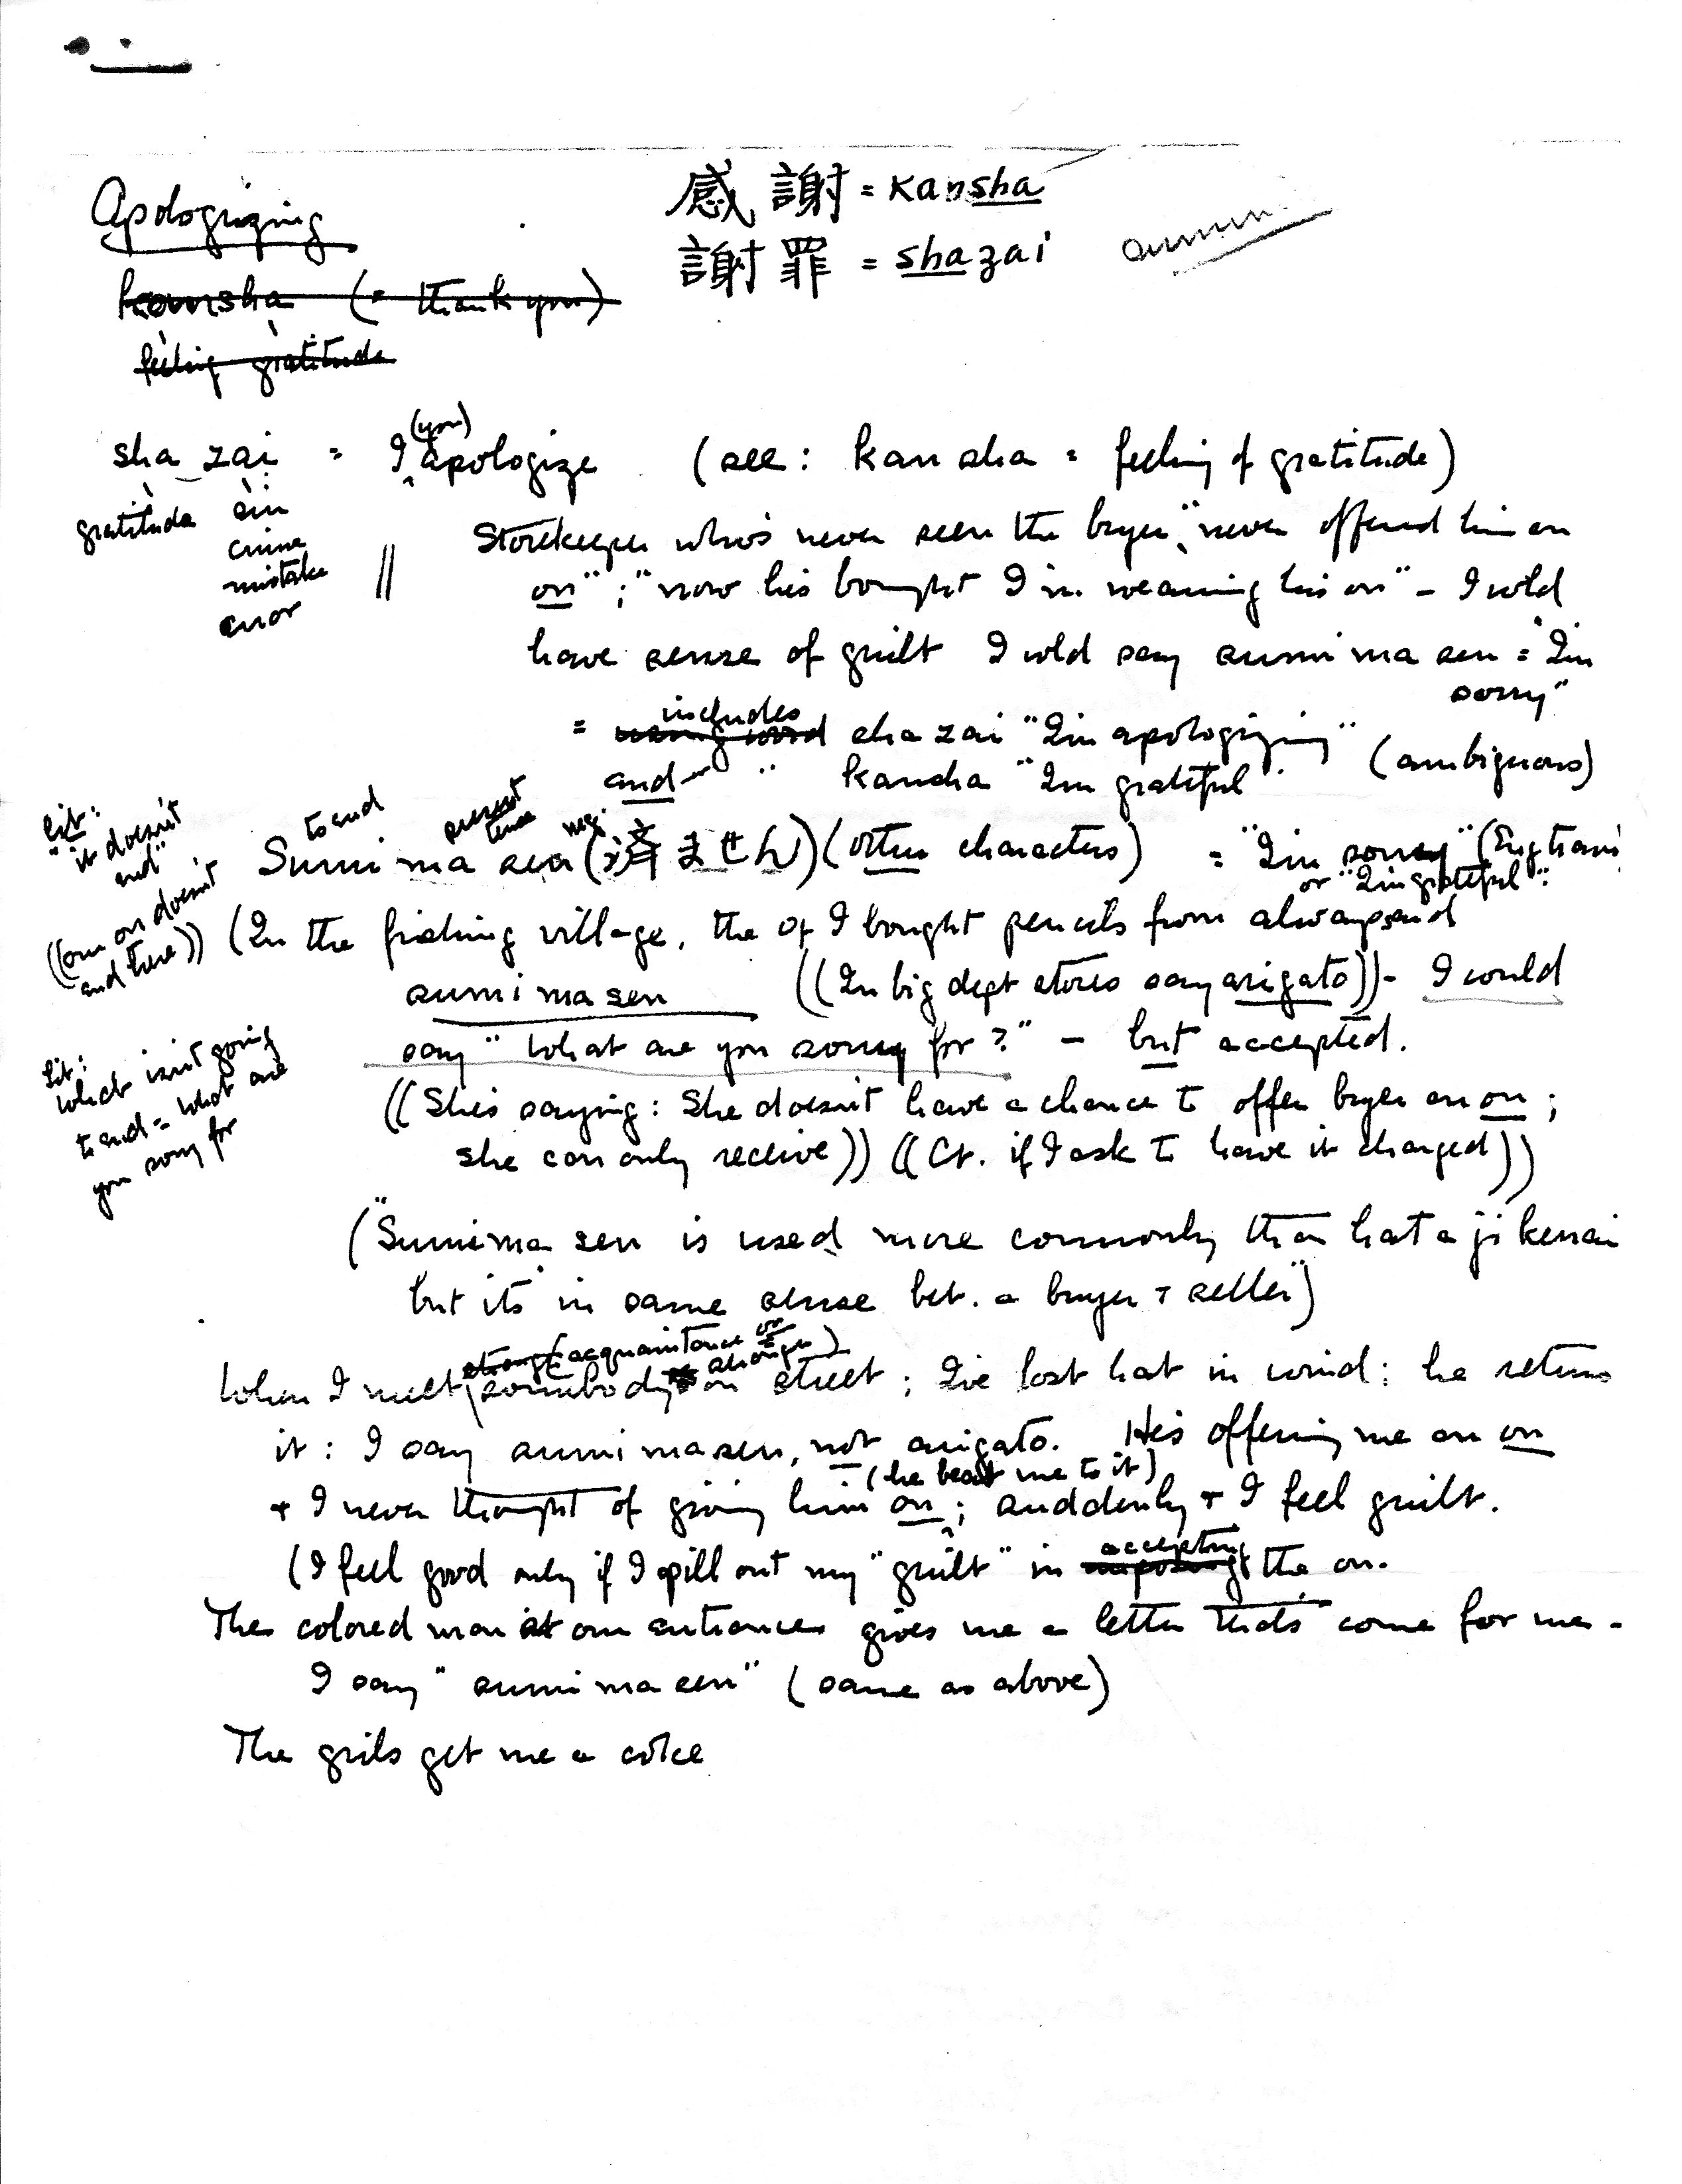 Apologizing
感謝 = kansha
謝罪 = shazai
kansha (= thank you)
feeling gratitude
sha zai = I (you) apologize (see: kansha = feeling of gratitude)
gratitude sin
crime
mistake
error
Storekeeper who's never seen the buyer, "never offered him an
on"; "now he's bought I'm wearing his on" - I wld
have sense of guilt I wld say sumi ma sen = "I'm
sorry"
= includes sha zai "I'm apologizing"
and " kansha "I'm grateful" (ambiguous)
to end present tense neg.
Sumi ma sen (済ません) (other characters) = "I'm sorry" (Eng trans
or "I'm grateful".
lit:
"it doesn't
end"
((our on doesn't
end there))
(In the fishing village, the I bought pencils from always said
sumi ma sen ((In big dept stores say arigato)) - I would
say "What are you sorry for?" - but accepted.
lit:
What isn't going
to end = what are
you sorry for
((She's saying: She doesn't have a chance to offer buyer an on;
she can only receive)) ((Cf. if I ask to have it charged))
("Sumima sen is used more commonly than kata ji kenai
but it's in same sense bet. a buyer + seller")
When I meet (somebody on street; I've lost hat in wind; he returns
(acquaintance or stranger)
it: I say sumi ma sen, not arigato. He's offering me an on
(he beat me to it)
+ I never thought of giving him on; suddenly + I feel guilt.
(I feel good only if I spill out my "guilt" in accepting the on.
The colored man at our entrance gives me a letter that's come for me -
I say "sumi ma sen" (same as above)
The girls get me a coke